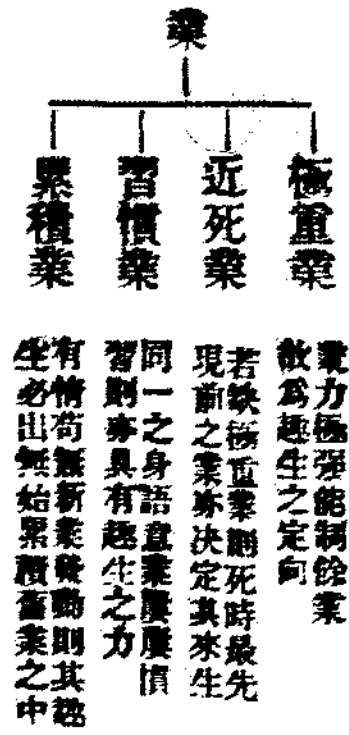 業
極重業
近死業
習慣業
累積業
業力極强能制餘業
故爲趣生之定向
若缺極重業則死時最先
現前之業亦決定其來生
同一之身語意業屢屢慣
習則亦具有趣生之力
有情苟無新業發動則其趣
生必出無始累積舊業之中